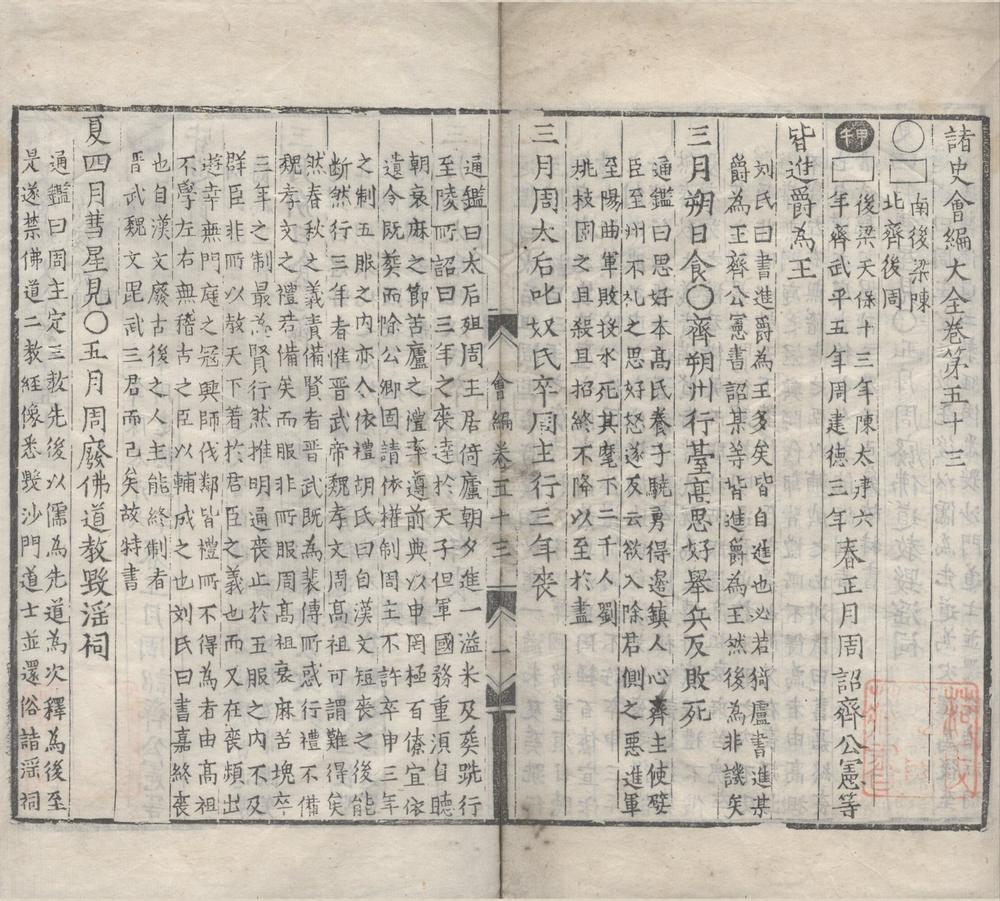 諸史會編大全卷第五十三
南後梁陳
北齊後周
甲午
後梁天保十三年陳太建六
年齊武平五年周建德三年
春正月周詔齊公憲等
皆進爵為王
刘氏曰書進爵為王多矣皆自進也必若猗盧書進某
爵為王齊公憲書詔某等皆進爵為王然後為非譏矣
三月朔日食○齊朔州行臺高思好舉兵反敗死
通鑑曰思好本高氏養子驍勇得邊鎮人心齊主使嬖
臣至州不礼之思好怒遂反云欲入除君側之惡進軍
至陽曲軍敗投水死其麾下二千人劉
桃枝圍之且殺且招終不降以至於盡
三月周太后叱奴氏卒周主行三年喪
通鑑曰太后殂周主居倚廬朝夕進一溢米及葬跣行
至陵所詔曰三年之喪達於天子但軍國務重須自聽
朝衰麻之節苫廬之禮率遵前典以申罔極百僚宜依
遺令既葬而除公卿固請依權制周主不許卒申三年
之制五服之內亦令依禮胡氏曰自漢文短喪之後能
断然行三年者惟晋武帝魏孝文周高祖可謂難得矣
然春秋之義責備賢者晋武既為裴傳所惑行禮不備
魏孝文之禮若備矣而服非所服周高祖衰麻苫塊卒
三年之制最為賢行然推明通喪止於五服之內不及
群臣非所以教天下着於君臣之義也而又在喪頻出
遊幸無門庭之冦興師伐鄰皆禮所不得為者由高祖
不學左右無稽古之臣以輔成之也刘氏曰書嘉終喪
也自漢文廢古後之人主能終制者
晋武魏文毘武三君而已矣故特書
夏四月彗星見○五月周廢佛道教毀淫祠
通鑑曰周主定三教先後以儒為先道為次釋為後至
是遂禁佛道二教經像悉毀沙門道士並還俗諸淫祠
會編卷五十三
一